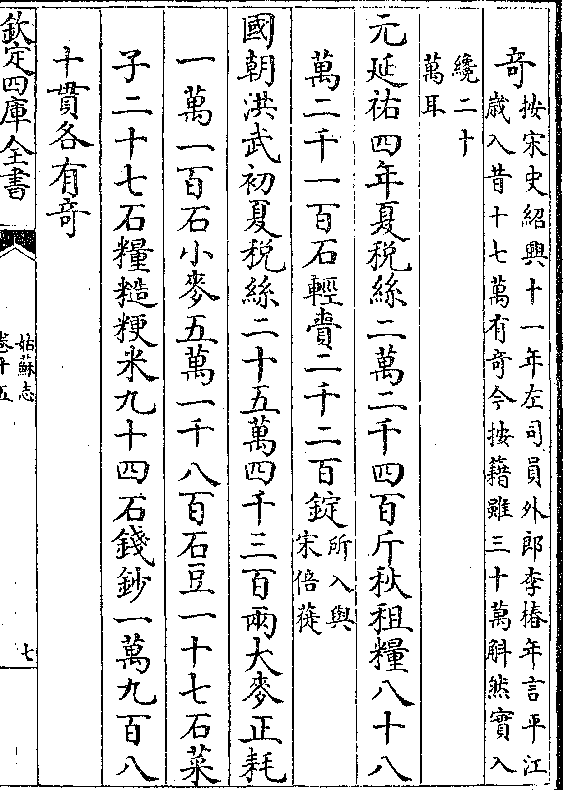 奇
按宋史紹興十一年左司員外郎李椿年言平江
歲入昔十七萬有奇今按籍雖三十萬斛然實入
纔二十
萬耳
元延祐四年夏税絲二萬二千四百斤秋租糧八十八
萬二千一百石輕賫二千二百錠
所入與
宋倍蓰
國朝洪武初夏税絲二十五萬四千三百兩大麥正耗
一萬一百石小麥五萬一千八百石豆一十七石菜
子二十七石糧糙粳米九十四石錢鈔一萬九百八
十貫各有奇
欽定四庫全書
姑蘇志
卷十五
七